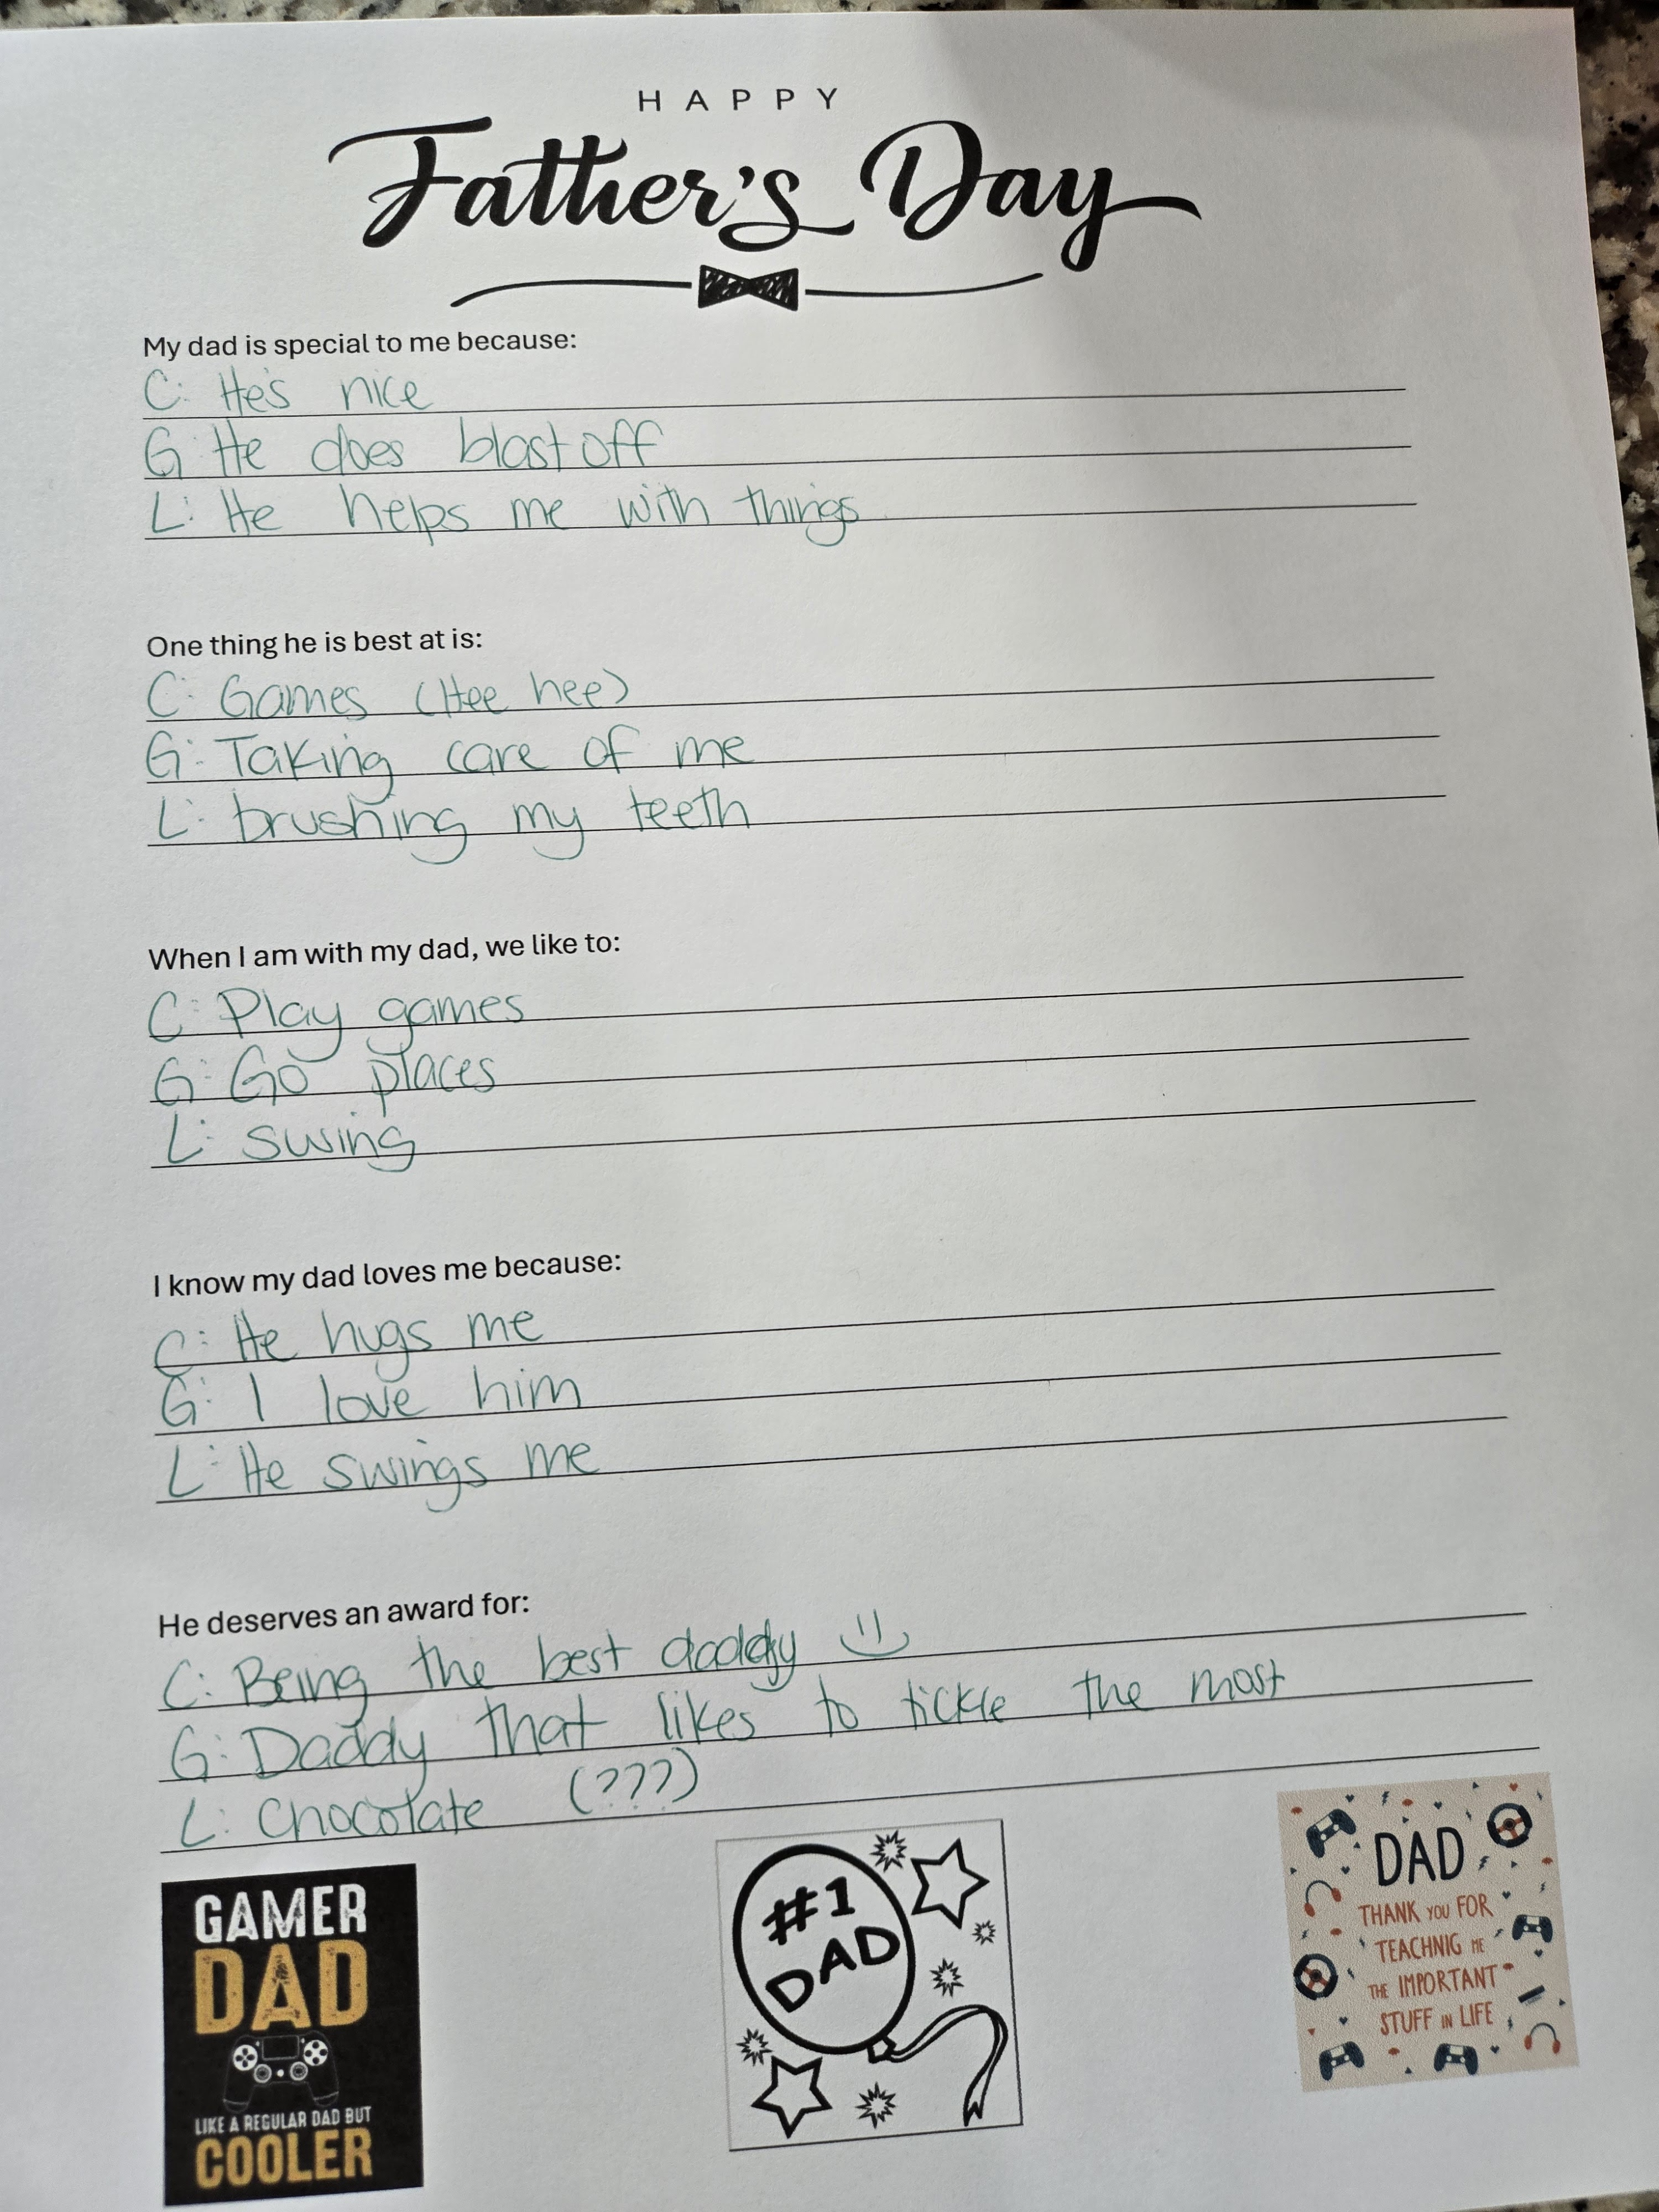 HAPPY
Father's Day
My dad is special to me because:
C: He's nice
G He does blast off
L: He helps me with things
One thing he is best at is:
C: Games (Hee hee)
G: Taking care of me
L: brushing my teeth
When I am with my dad, we like to:
C: Play games
G: Go places
L: swing
I know my dad loves me because:
C: He hugs me
G: I love him
L: He swings me
He deserves an award for:
C: Being the best daddy
G: Daddy that likes to tickle the most
L: Chocolate (???)
GAMER
DAD
LIKE A REGULAR DAD BUT
COOLER
#1
DAD
DAD
THANK YOU FOR
TEACHNIG ME
THE IMPORTANT
STUFF IN LIFE